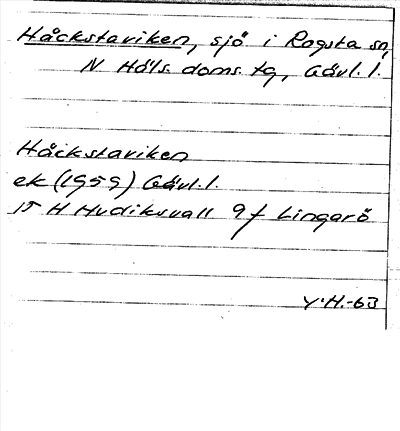 Håckstaviken, sjö i Rogsta sn,
N Häls. doms. tg, Gävl. l.
Håickstaviken
ek (1959) Gävl. l.
15 H Hudiksvall 9f Lingarö
Y.H.-63